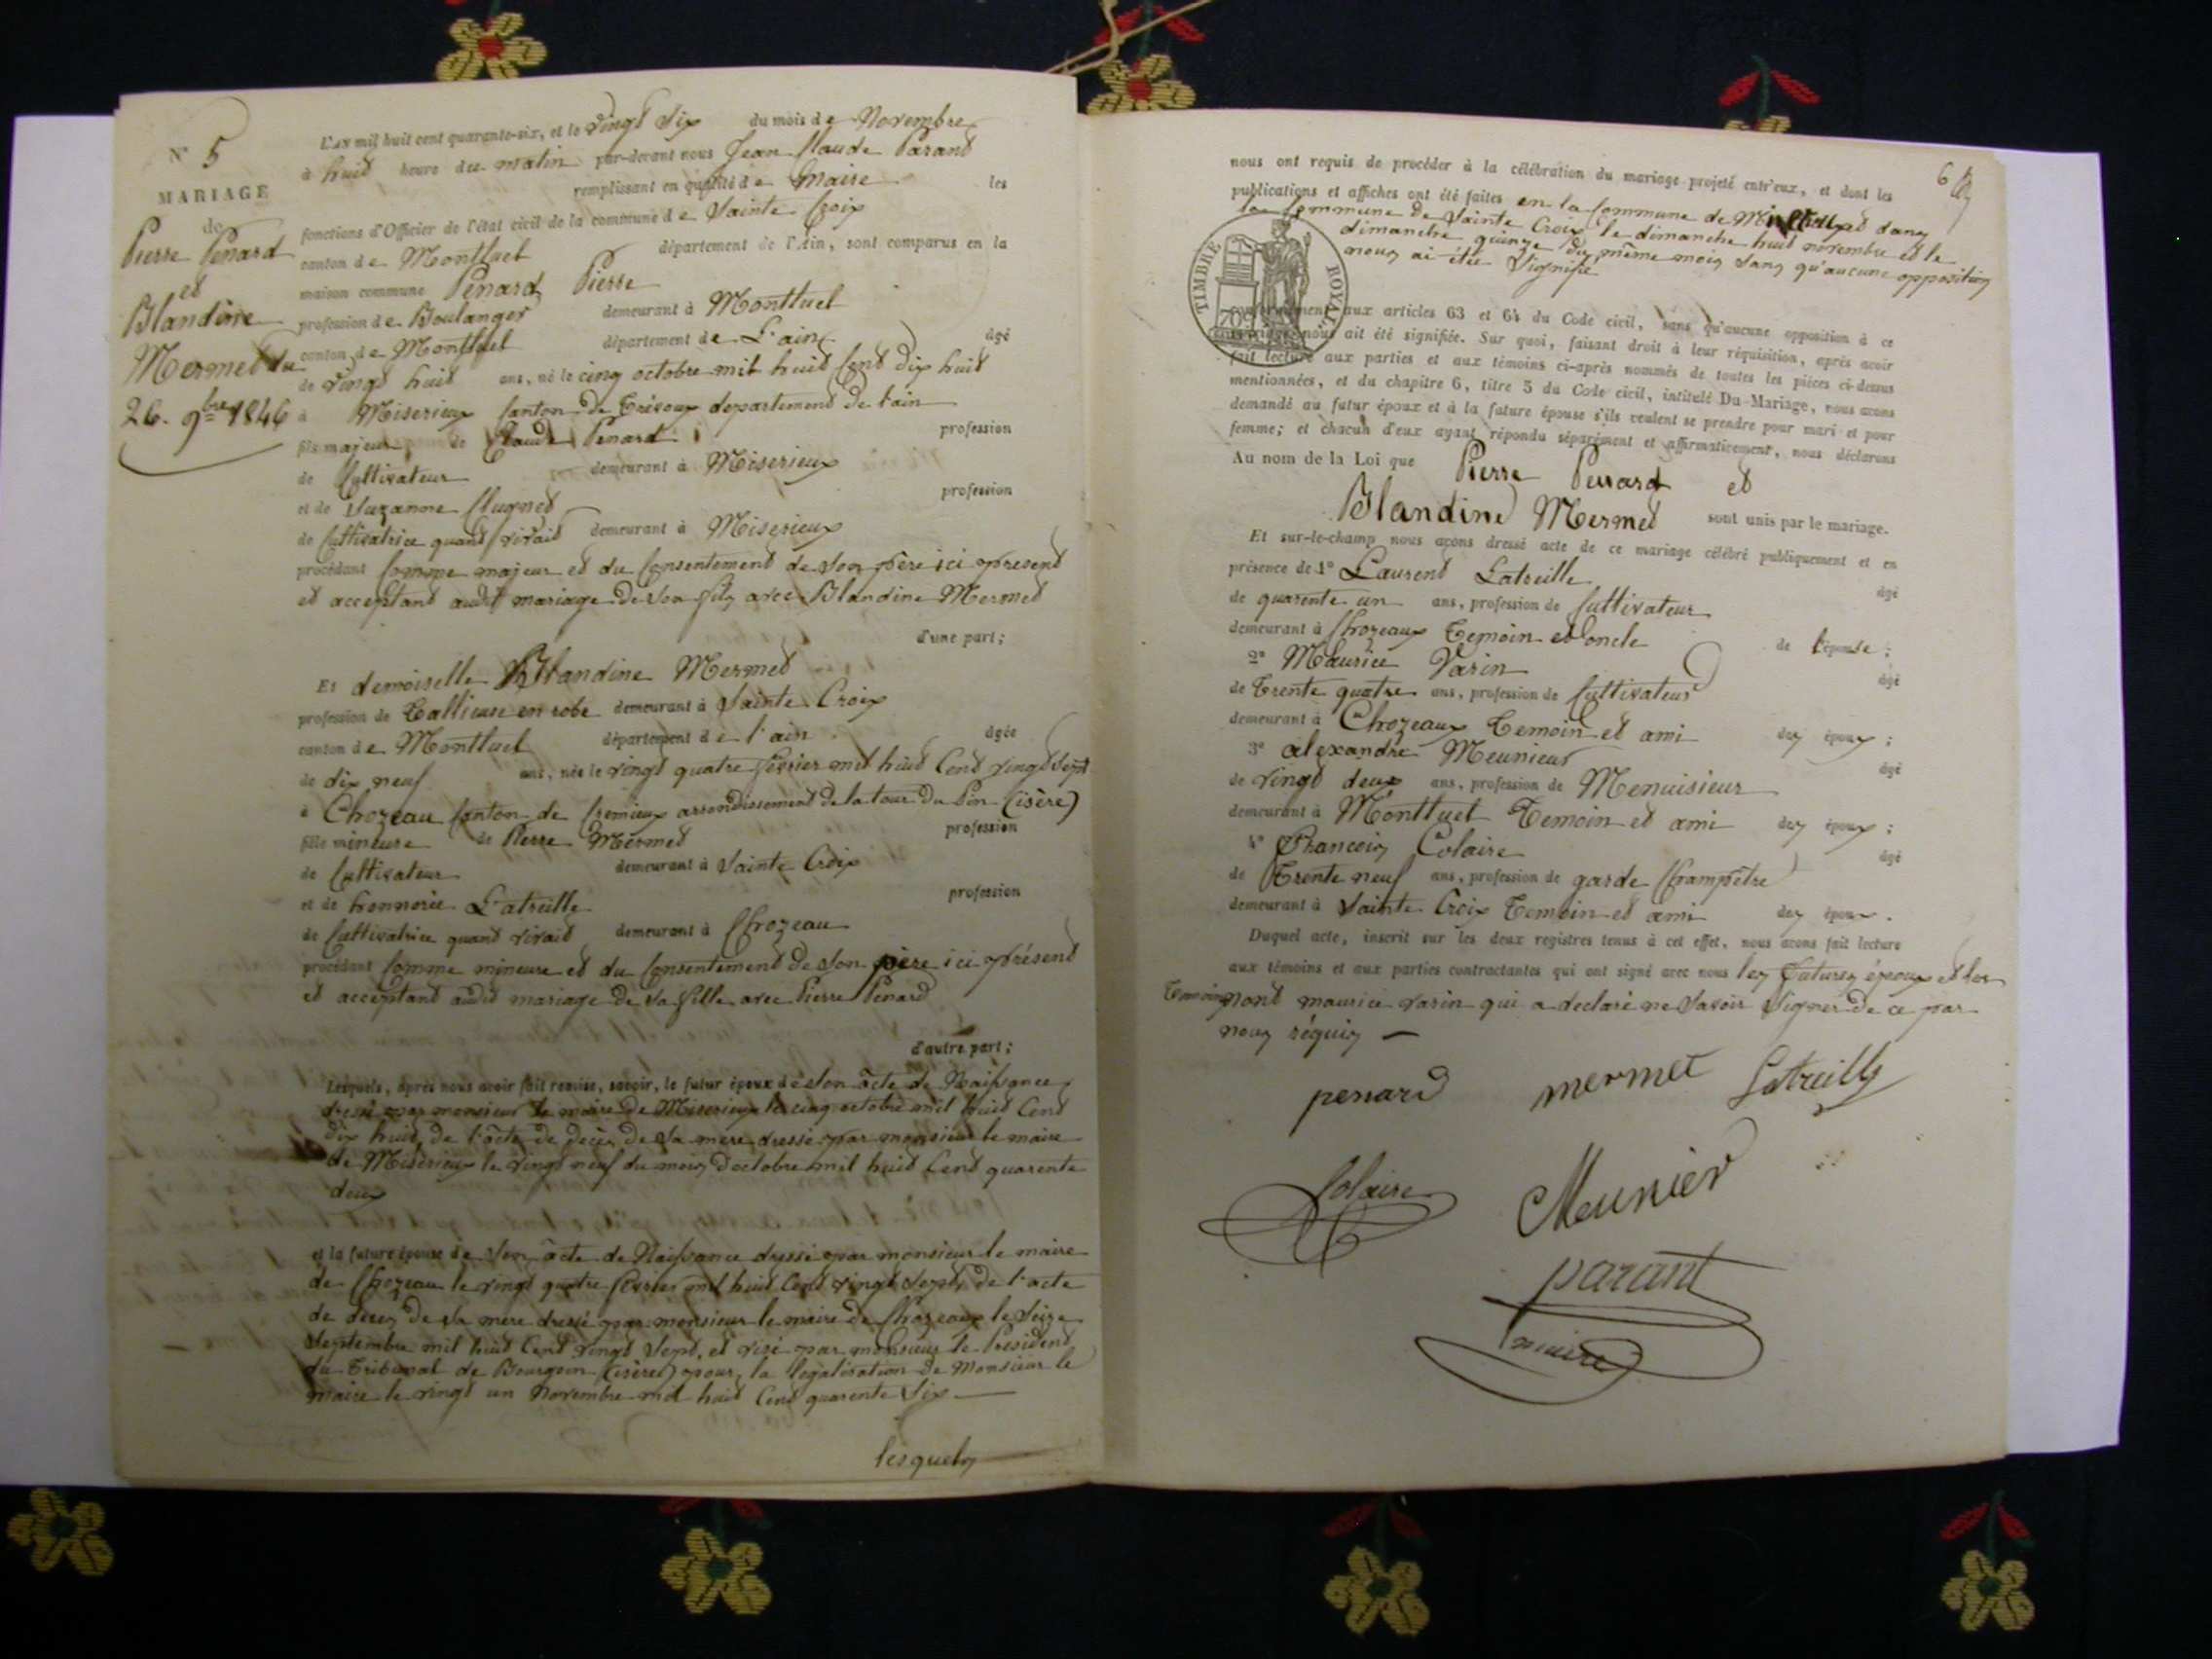 N° 5
MARIAGE
de
Pierre Penard
et
Blandine
Mermet du
26. 9bre 1846
L'AN mil huit cent quarante-six, et le vingt Six du mois de Novembre
à huit heure du matin par-devant nous Jean Claude Parant
remplissant en qualité de Maire les
fonctions d'Officier de l'état civil de la commune de Sainte Croix
canton de Montluel département de l'Ain, sont comparus en la
maison commune Penard Pierre
profession de Boulanger demeurant à Montluel
canton de Montluel département de L'ain âgé
de vingt huit ans, né le cinq octobre mil huit Cent dix huit
à Miserieux Canton de Trévoux departement de l'ain
fils majeur de Claude Penard profession
de Cultivateur demeurant à Miserieux
et de Suzanne Clugnet profession
de Cultivatrice quand vivait demeurant à Miserieux
procédant Comme majeur et du Consentement de Son père ici présent
et acceptant audit mariage de Son fils avec Blandine Mermet
d'une part;
Et demoiselle Blandine Mermet
profession de Tallieuse en robe demeurant à Sainte Croix
canton de Montluel département de l'ain âgée
de dix neuf ans, née le vingt quatre février mil huit Cent vingt Sept
à Chozeau Canton de Cremieux arrondissement de la tour du Pin (isère)
fille mineure de Pierre Mermet profession
de Cultivateur demeurant à Sainte Croix
et de honnorie Latreille profession
de Cultivatrice quand vivait demeurant à Chozeau
procédant Comme mineure et du Consentement de Son père ici présent
et acceptant audit mariage de Sa fille avec Pierre Penard
d'autre part;
Lesquels, après nous avoir fait remise, savoir, le futur époux de Son acte de Naissance
dressé par monsieur le maire de Miserieux le cinq octobre mil huit Cent
dix huit, de l'acte de décès de Sa mère dressé par monsieur le maire
de Miserieux le vingt neuf du mois d'octobre mil huit Cent quarente
deux
et la future épouse de Son acte de Naissance dressé par monsieur le maire
de Chozeau le vingt quatre février mil huit Cent vingt Sept, de l'acte
de décès de Sa mère dressé par monsieur le maire de Chozeaux le Seize
Septembre mil huit Cent vingt Sept, et visé par monsieur le President
du Tribunal de Bourgoin (isère) pour la légalisation de Monsieur le
Maire le vingt un Novembre mil huit Cent quarente Six
lesquels
6
nous ont requis de procéder à la célébration du mariage projeté entr'eux, et dont les
publications et affiches ont été faites en la Commune de Montluel et dans
la Commune de Sainte Croix le dimanche huit novembre et le
dimanche quinze du même mois Sans qu'aucune opposition
nous ai étée Signifié
TIMBRE ROYAL
70
conformément aux articles 63 et 64 du Code civil, sans qu'aucune opposition à ce
mariage nous ait été signifiée. Sur quoi, faisant droit à leur réquisition, après avoir
fait lecture aux parties et aux témoins ci-après nommés de toutes les pièces ci-dessus
mentionnées, et du chapitre 6, titre 5 du Code civil, intitulé Du Mariage, nous avons
demandé au futur époux et à la future épouse s'ils veulent se prendre pour mari et pour
femme; et chacun d'eux ayant répondu séparément et affirmativement, nous déclarons
Au nom de la Loi que Pierre Penard et
Blandine Mermet sont unis par le mariage.
Et sur-le-champ nous avons dressé acte de ce mariage célébré publiquement et en
présence de 1° Laurent Latreille âgé
de quarente un ans, profession de Cultivateur
demeurant à Chozeaux Temoin et oncle de l'épouse;
2° Maurice Varin âgé
de Trente quatre ans, profession de Cultivateur
demeurant à Chozeaux Temoin et ami des époux;
3° alexandre Meunieur âgé
de vingt deux ans, profession de Menuisieur
demeurant à Montluel Temoin et ami des époux;
4° Francois Colaire âgé
de Trente neuf ans, profession de garde Champêtre
demeurant à Sainte Croix Temoin et ami des époux.
Duquel acte, inscrit sur les deux registres tenus à cet effet, nous avons fait lecture
aux témoins et aux parties contractantes qui ont signé avec nous les futures époux et les
Temoins nont maurice varin qui a declaré ne Savoir Signer de ce par
nous réquis
penard mermet Latreille
Colaire Meunier
parant
maire